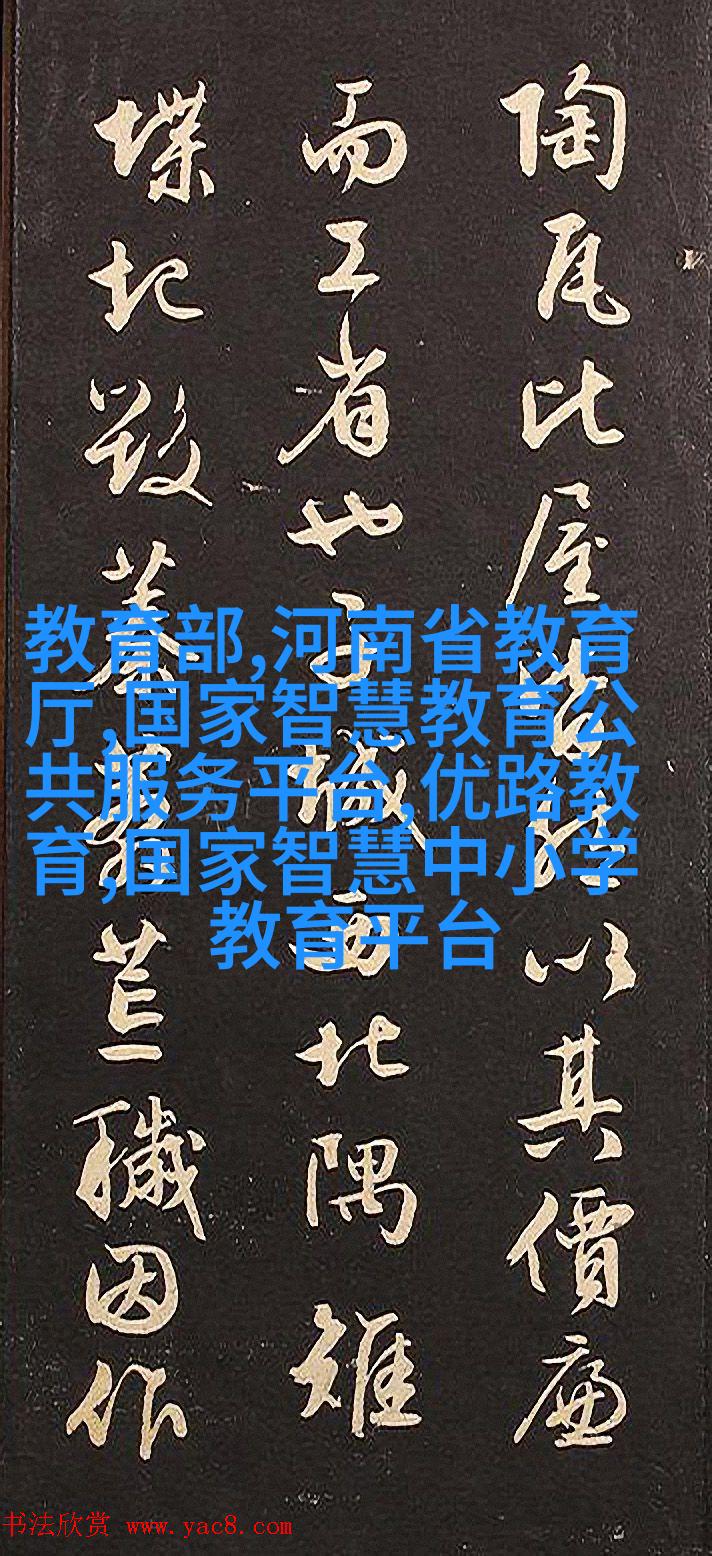 陶瓦比屋皆然以其價廉
而工省也子城西北隅雉
堞圮毀蓁莽荒穢因作
教育部,河南省教育
厅,国家智慧教育公
共服务平台,优路教
育,国家智慧中小学
教育平台
书法欣赏 www.yac8.com